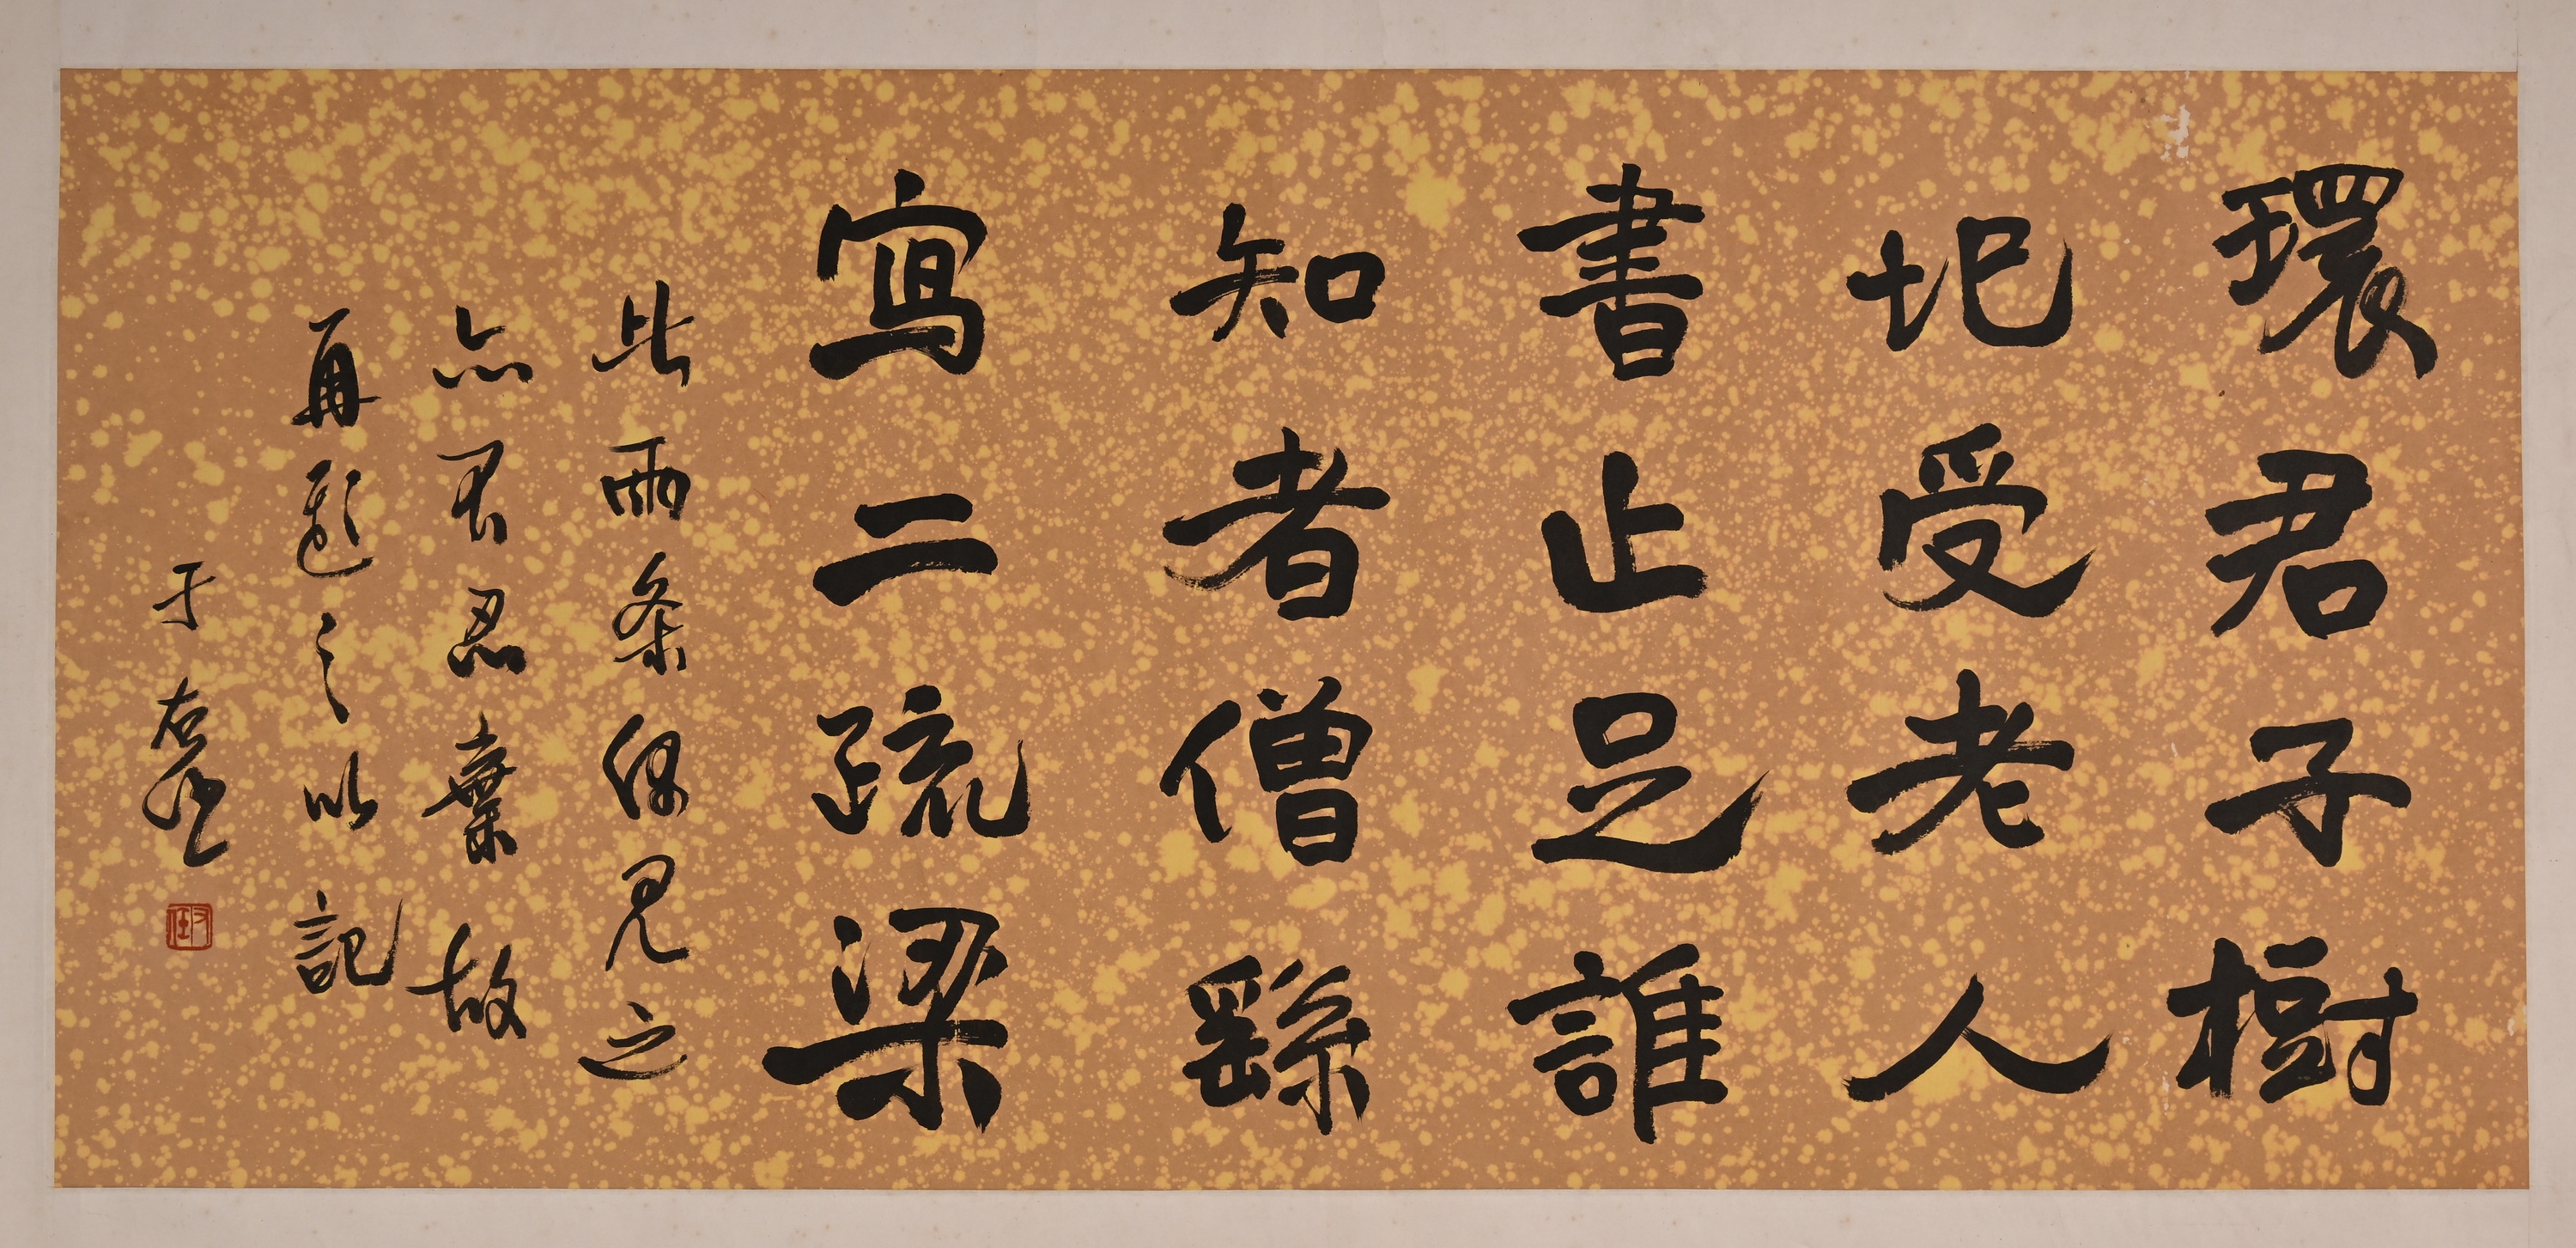 環君子樹
圯受老人
書止足誰
知者僧繇
寫二疏梁
此兩条偶見之
亦忍棄故
再題之以記
于右任
右任